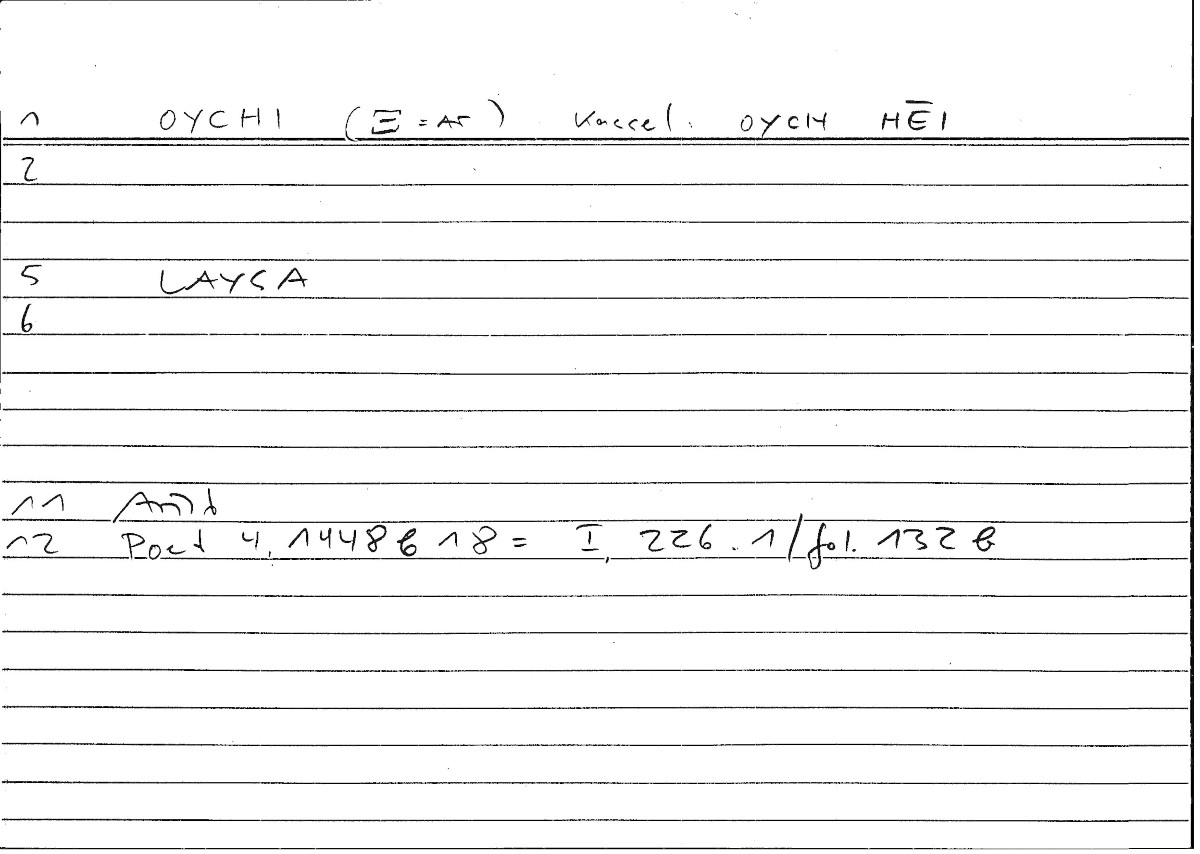 1 OYCHI (Ξ = Ar) Kassel. OYCH HE̅I
2
5 LAYSA
6
11 Arist
12 Poet 4, 1448b 18 = I, 226.1/fol. 132b